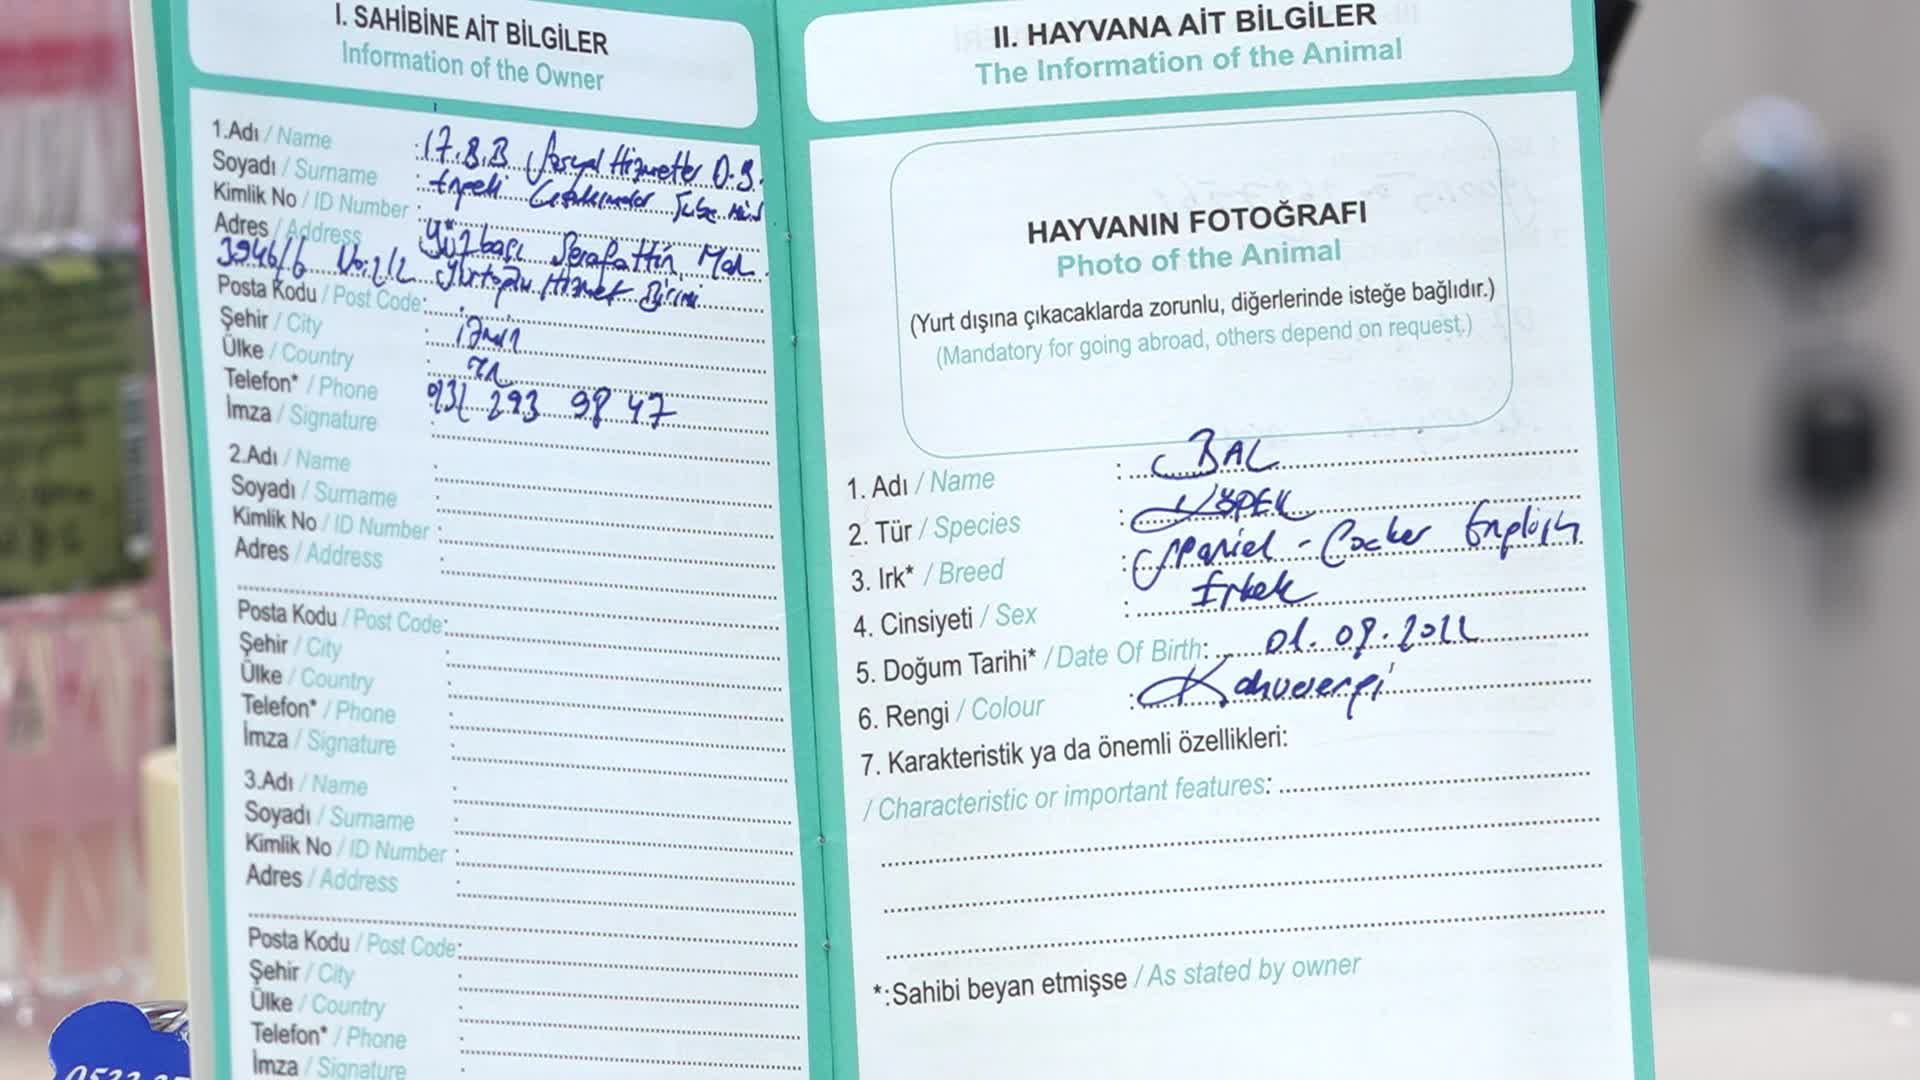 I. SAHİBİNE AİT BİLGİLER
Information of the Owner
1.Adı / Name : İ7.B.B Sosyal Hizmetler D.B.
Soyadı / Surname : Engelli Çalışmalar Şube Müd
Kimlik No / ID Number :
Adres / Address Yüzbaşı Şerafettin Mah.
3946/6 No:2/2 Yurtoğlu Hizmet Birimi
Posta Kodu / Post Code:
Şehir / City : İzmir
Ülke / Country : TR
Telefon* / Phone : 293 98 47
İmza / Signature :
2.Adı / Name :
Soyadı / Surname :
Kimlik No / ID Number :
Adres / Address :
Posta Kodu / Post Code:
Şehir / City :
Ülke / Country :
Telefon* / Phone :
İmza / Signature :
3.Adı / Name :
Soyadı / Surname :
Kimlik No / ID Number :
Adres / Address :
Posta Kodu / Post Code:
Şehir / City :
Ülke / Country :
Telefon* / Phone :
İmza / Signature :
II. HAYVANA AİT BİLGİLER
The Information of the Animal
HAYVANIN FOTOĞRAFI
Photo of the Animal
(Yurt dışına çıkacaklarda zorunlu, diğerlerinde isteğe bağlıdır.)
(Mandatory for going abroad, others depend on request.)
1. Adı / Name : BAL
2. Tür / Species : KÖPEK
3. Irk* / Breed : Spaniel - Cocker English
4. Cinsiyeti / Sex : Erkek
5. Doğum Tarihi* / Date Of Birth: 01.09.2022
6. Rengi / Colour : Kahverengi
7. Karakteristik ya da önemli özellikleri:
/ Characteristic or important features:
*:Sahibi beyan etmişse / As stated by owner